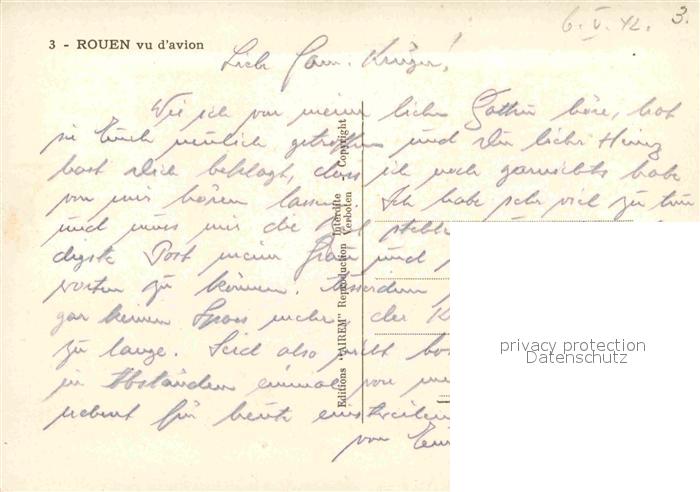 6. V. 42. 3.
3 - ROUEN vu d'avion
Liebe Fam. Krüger!
Wie ich von meiner lieben Gattin höre, hat
sie Euch neulich getroffen und Du lieber Heinz
hast Dich beklagt, dass ich noch garnichts habe
von mir hören lassen. Ich habe sehr viel zu tun
und muss mir die Zeit stehlen
digste Post meiner Frau und
worten zu können. Ausserdem
gar keinen Spass mehr, der K
zu lange. Seid also nicht bös
in Abständen einmal von
nehmt für heute einstweilen
von
Editions "AIREM" Reproduction Interdite Copyright
Verboten
privacy protection
Datenschutz